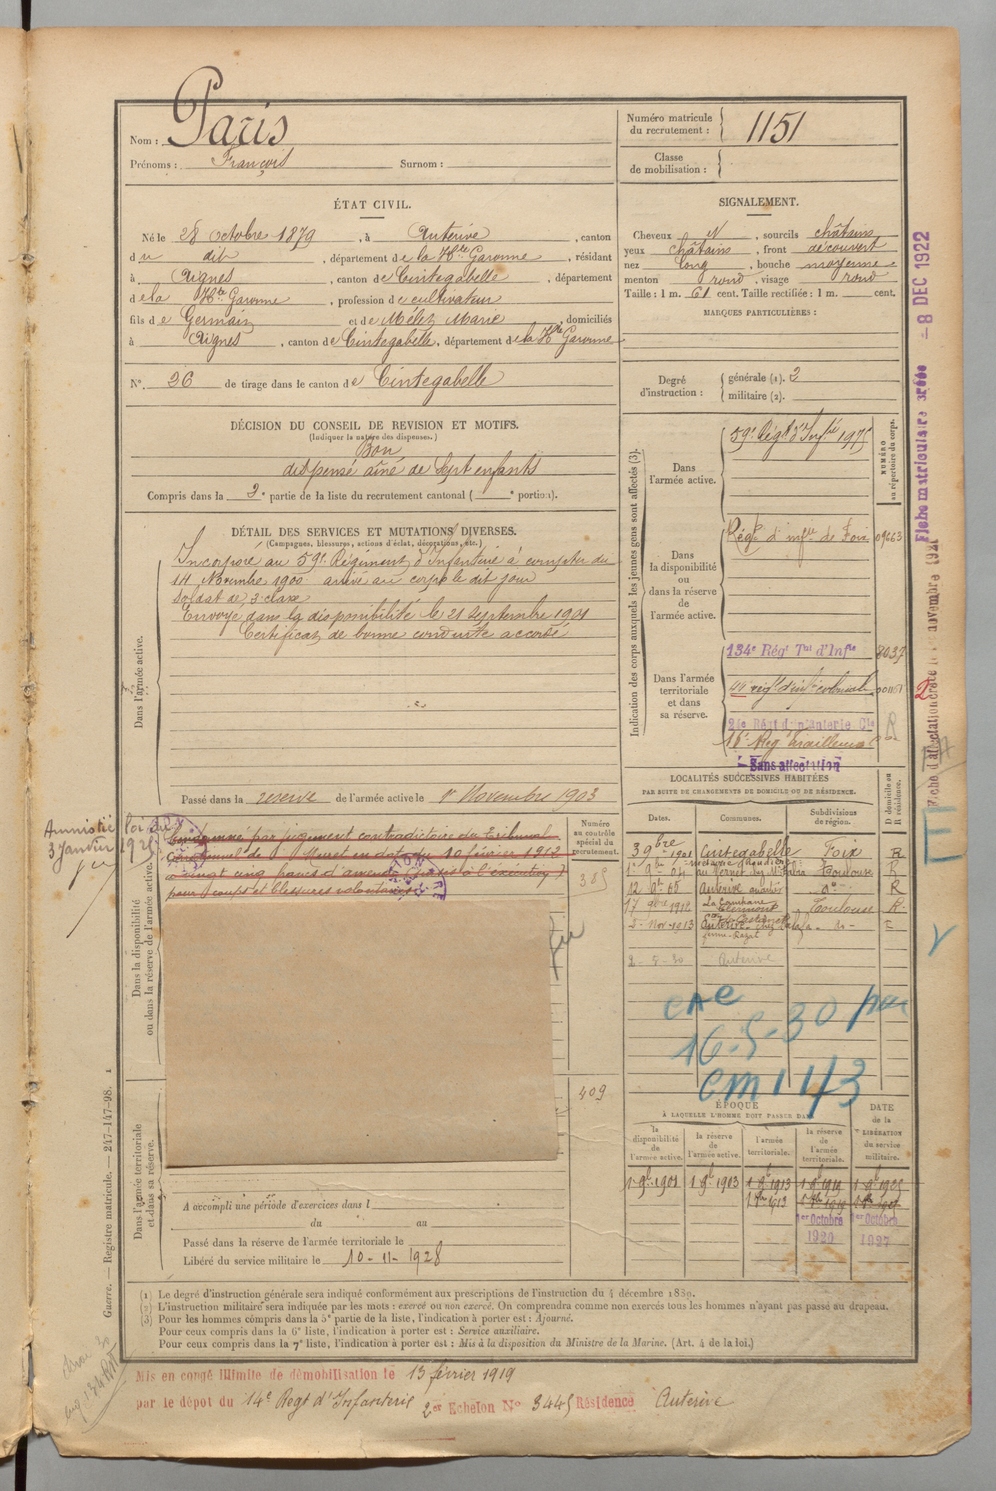 Nom : Paris
Prénoms : François Surnom :
Numéro matricule du recrutement : 1151
Classe de mobilisation :
ÉTAT CIVIL.
Né le 28 octobre 1879, à Auterive, canton
du dit, département de la Hte Garonne, résidant
à Aignes, canton de Cintegabelle, département
de la Hte Garonne, profession de cultivateur
fils de Germain et de Mélet Marie, domiciliés
à Aignes, canton de Cintegabelle, département de la Hte Garonne
N°. 26 de tirage dans le canton de Cintegabelle
SIGNALEMENT.
Cheveux N, sourcils châtains
yeux châtains, front découvert
nez long, bouche moyenne
menton rond, visage rond
Taille : 1 m. 61 cent. Taille rectifiée : 1 m. cent.
MARQUES PARTICULIÈRES :
Degré d'instruction :
générale (1). 2
militaire (2).
DÉCISION DU CONSEIL DE REVISION ET MOTIFS.
(Indiquer la nature des dispenses.)
Bon
dispensé aîné de sept enfants
Compris dans la 2e partie de la liste du recrutement cantonal ( e portion).
DÉTAIL DES SERVICES ET MUTATIONS DIVERSES.
(Campagnes, blessures, actions d'éclat, décorations, etc.)
Dans l'armée active.
Incorporé au 59e Régiment d'Infanterie à compter du
14 Novembre 1900 arrivé au corps le dit jour
Soldat de 2e classe
Envoyé dans la disponibilité le 21 septembre 1901
Certificat de bonne conduite accordé
Passé dans la réserve de l'armée active le 1er Novembre 1903
Indication des corps auxquels les jeunes gens sont affectés (3).
NUMÉRO au répertoire du corps.
Dans l'armée active.
59e Régt d'Infie
Dans la disponibilité ou dans la réserve de l'armée active.
Régt d'infie de Foix 09663
Dans l'armée territoriale et dans sa réserve.
134e Régt Tal d'Infie
régt d'infie coloniale 001151
24e Régt d'infanterie Cle
16e Reg tirailleurs
Sans affectation
Fiche matriculaire créée -8 DEC 1922
LOCALITÉS SUCCESSIVES HABITÉES
PAR SUITE DE CHANGEMENTS DE DOMICILE OU DE RÉSIDENCE.
Dates. Communes. Subdivisions de région. D domicile ou R résidence.
3 9bre 1901 Cintegabelle Foix R
Toulouse R
Auterive R
17 9bre 1912 Clermont Toulouse R
Nov 1913 Auterive
2-5-30 Auterive
CAE
16-5-30 par
CM 143
Amnistié
3 Janvier 1925
Numéro au contrôle spécial du recrutement.
385
409
Dans la disponibilité ou dans la réserve de l'armée active.
Condamné par jugement contradictoire du Tribunal
Correctionnel de Muret en date du 10 février 1912
à vingt cinq francs d'amende (sursis à l'exécution)
pour coups et blessures volontaires
Dans l'armée territoriale et dans sa réserve.
A accompli une période d'exercices dans l
du au
Passé dans la réserve de l'armée territoriale le
Libéré du service militaire le 10-11-1928
ÉPOQUE
À LAQUELLE L'HOMME DOIT PASSER DANS
la disponibilité de l'armée active. la réserve de l'armée active. l'armée territoriale. la réserve de l'armée territoriale.
DATE de la LIBÉRATION du service militaire.
1 9bre 1901 1 9b 1903 1 9b 1913 1 9b 1919
1er Octobre 1920
1er Octobre 1927
Guerre. — Registre matricule. — 247-147-98.
(1) Le degré d'instruction générale sera indiqué conformément aux prescriptions de l'instruction du 4 décembre 1889.
(2) L'instruction militaire sera indiquée par les mots : exercé ou non exercé. On comprendra comme non exercés tous les hommes n'ayant pas passé au drapeau.
(3) Pour les hommes compris dans la 5e partie de la liste, l'indication à porter est : Ajourné.
Pour ceux compris dans la 6e liste, l'indication à porter est : Service auxiliaire.
Pour ceux compris dans la 7e liste, l'indication à porter est : Mis à la disposition du Ministre de la Marine. (Art. 4 de la loi.)
Mis en congé illimité de démobilisation le 13 février 1919
par le dépôt du 14e Regt d'Infanterie 2er Echelon No 3445 Résidence Auterive